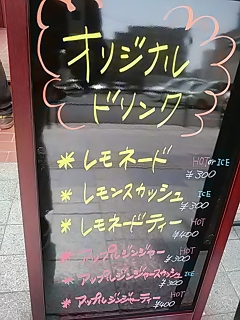 オリジナル
ドリンク
* レモネード HOT or ICE ¥300
* レモンスカッシュ ICE ¥300
* レモネードティー HOT ¥400
* アップルジンジャー HOT ¥300
* アップルジンジャースカッシュ ICE ¥300
* アップルジンジャーティー HOT ¥400